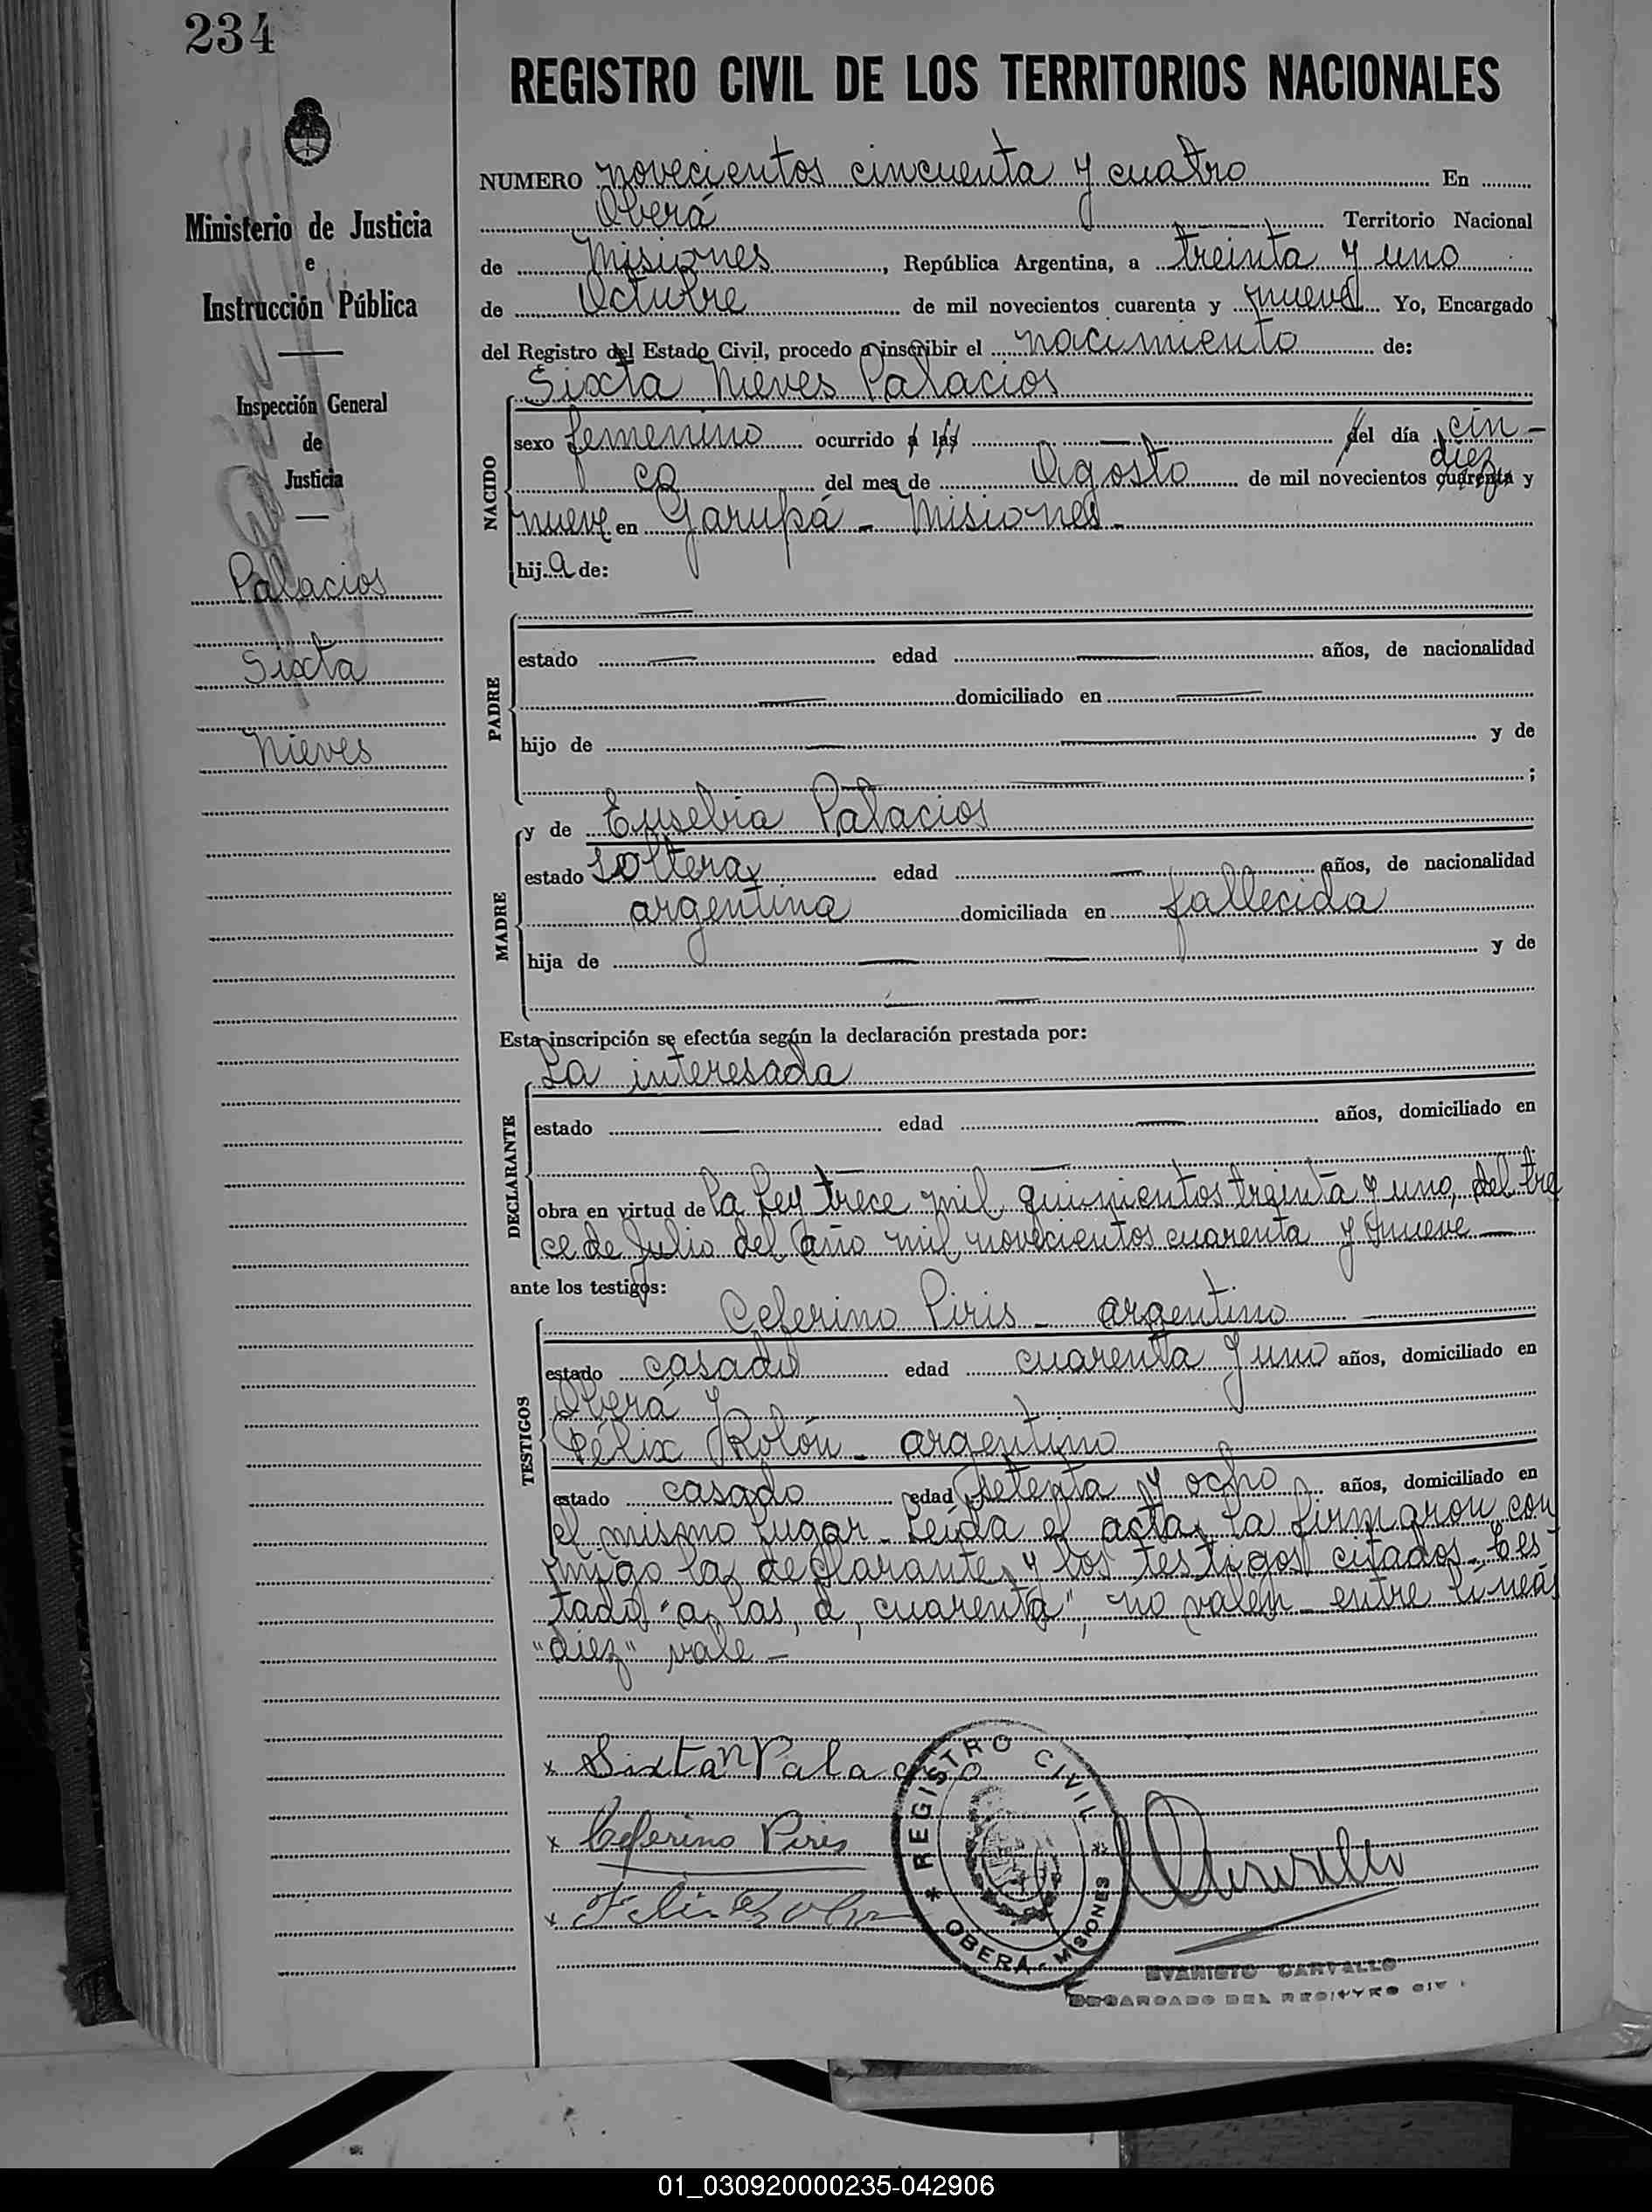 234
REGISTRO CIVIL DE LOS TERRITORIOS NACIONALES
Ministerio de Justicia
e
Instrucción Pública
Inspección General
de
Justicia
Palacios
Sixta
Nieves
NUMERO novecientos cincuenta y cuatro En
Oberá Territorio Nacional
de Misiones, República Argentina, a treinta y uno
de Octubre de mil novecientos cuarenta y nueve Yo, Encargado
del Registro del Estado Civil, procedo a inscribir el nacimiento de:
Sixta Nieves Palacios
NACIDO
sexo femenino ocurrido a las — del día cin-
diez
co del mes de Agosto de mil novecientos cuarenta y
nueve en Garupá - Misiones -
hija de:
PADRE
—
estado — edad — años, de nacionalidad
— domiciliado en —
hijo de — — y de
— ;
MADRE
y de Eusebia Palacios
estado Soltera edad — años, de nacionalidad
argentina domiciliada en fallecida
hija de — — y de
— —
Esta inscripción se efectúa según la declaración prestada por:
DECLARANTE
La interesada
estado — edad — años, domiciliado en
— —
obra en virtud de la Ley trece mil quinientos treinta y uno, del tre
ce de Julio del año mil novecientos cuarenta y nueve —
ante los testigos:
TESTIGOS
Ceferino Piris - argentino —
estado casado edad cuarenta y uno años, domiciliado en
Oberá y
Félix Rolón - argentino
estado casado edad setenta y ocho años, domiciliado en
el mismo lugar - Leída el acta, la firmaron con
migo la declarante y los testigos citados - Tes
tado "a las, d, cuarenta", no valen - entre líneas
"diez" vale -
x Sixta N Palacio
x Ceferino Piris
x Felix Rolon
REGISTRO CIVIL
* OBERÁ - MISIONES *
Carvallo
EVARISTO CARVALLO
ENCARGADO DEL REGISTRO CIV
01_030920000235-042906